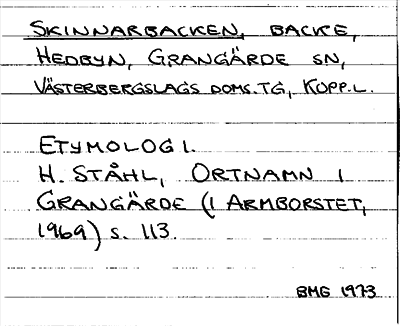 SKINNARBACKEN, BACKE,
HEDBYN, GRANGÄRDE SN,
VÄSTERBERGSLAGS DOMS.TG, KOPP.L.
ETYMOLOGI.
H. STÅHL, ORTNAMN I
GRANGÄRDE (I ARMBORSTET,
1969) s. 113.
BMG 1973